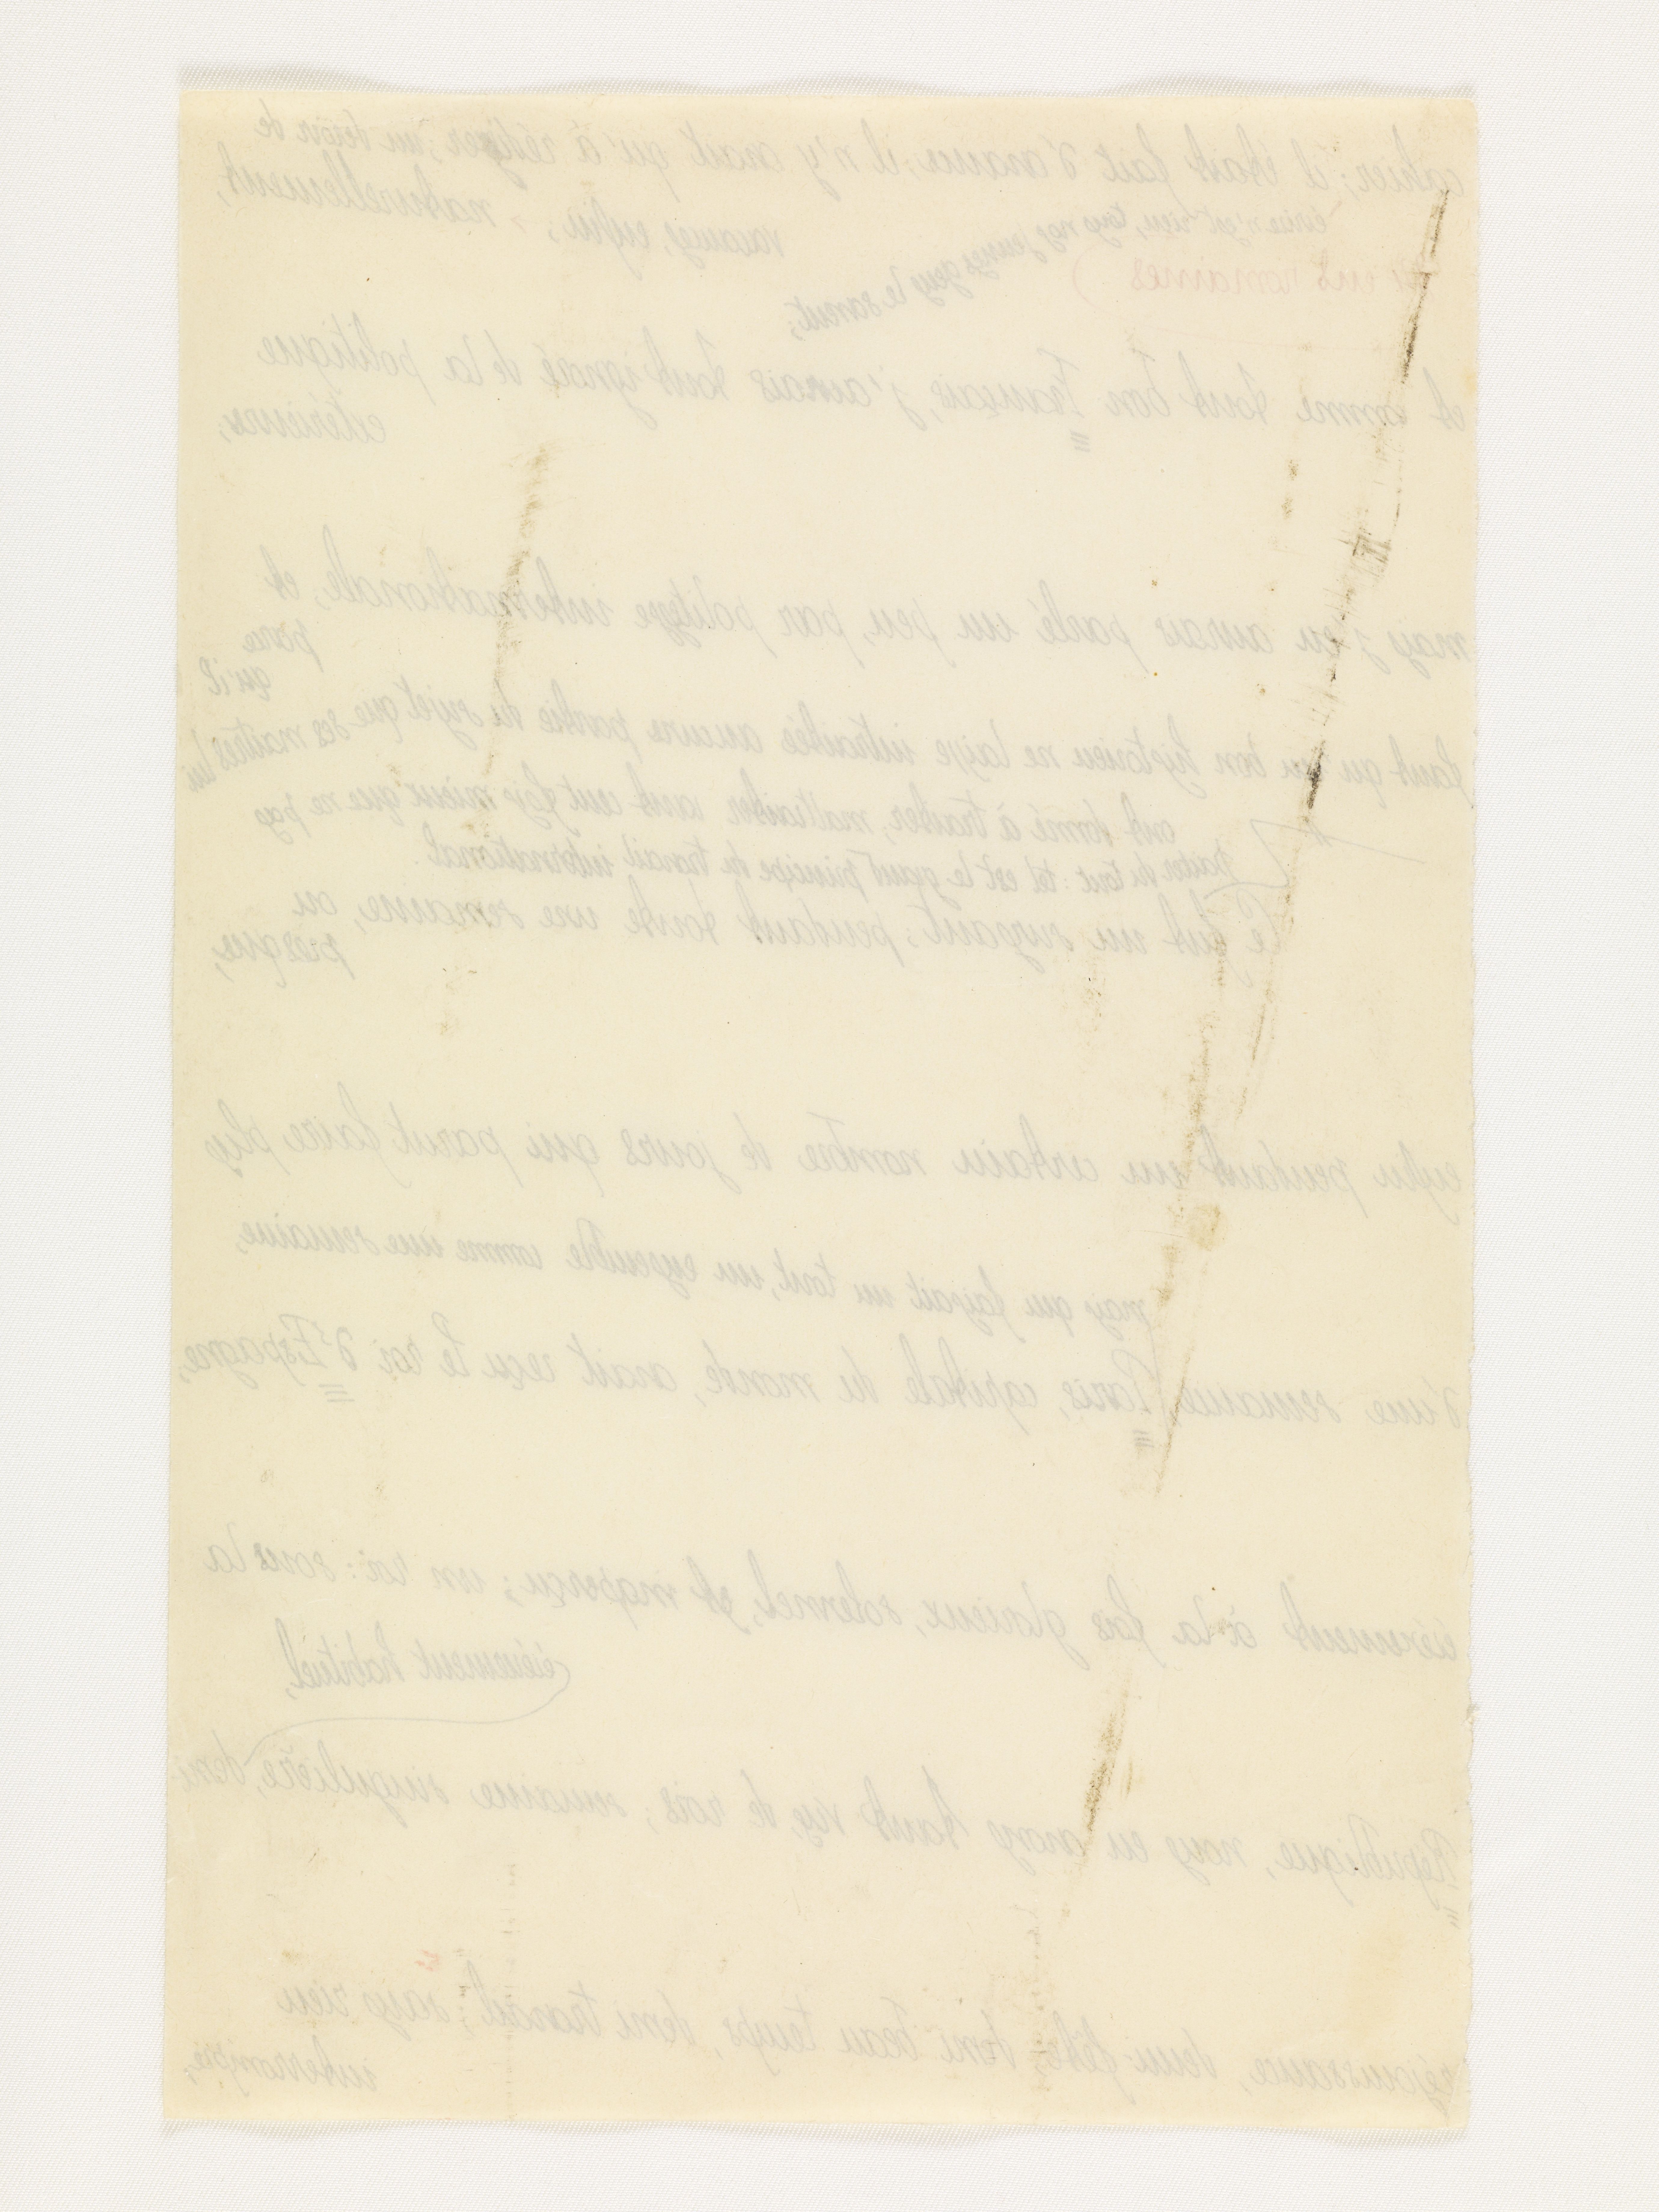 cahier; il était fait d'avance, il n'y avait qu'à rédiger; un devoir de
vacances, enfin; naturellement,
écrire n'est rien, tous nos jeunes gens le savent;
romaines
et comme tout bon Français, j'aurais tout ignoré de la politique
extérieure,
mais j'en aurais parlé un peu, par politesse internationale, et
parce
qu'il
faut qu'un bon historien ne laisse intraitée aucune partie du sujet que ses maîtres lui
ont donné à traiter; maltraiter vaut cent fois mieux que ne pas
traiter du tout: tel est le grand principe du travail international.
Ce fut un sursaut; pendant toute une semaine, ou
presque,
enfin pendant un certain nombre de jours qui parut faire plus
mais qui faisait un tout, un ensemble comme une semaine,
d'une semaine, Paris, capitale du monde, avait reçu le roi d'Espagne,
événement à la fois glorieux, solennel, et inaperçu; un roi: sous la
événement habituel,
République, nous en avons tant vus, de rois; semaine singulière, demi
réjouissance, demi fête, demi beau temps, demi travail; sans rien
interrompre,